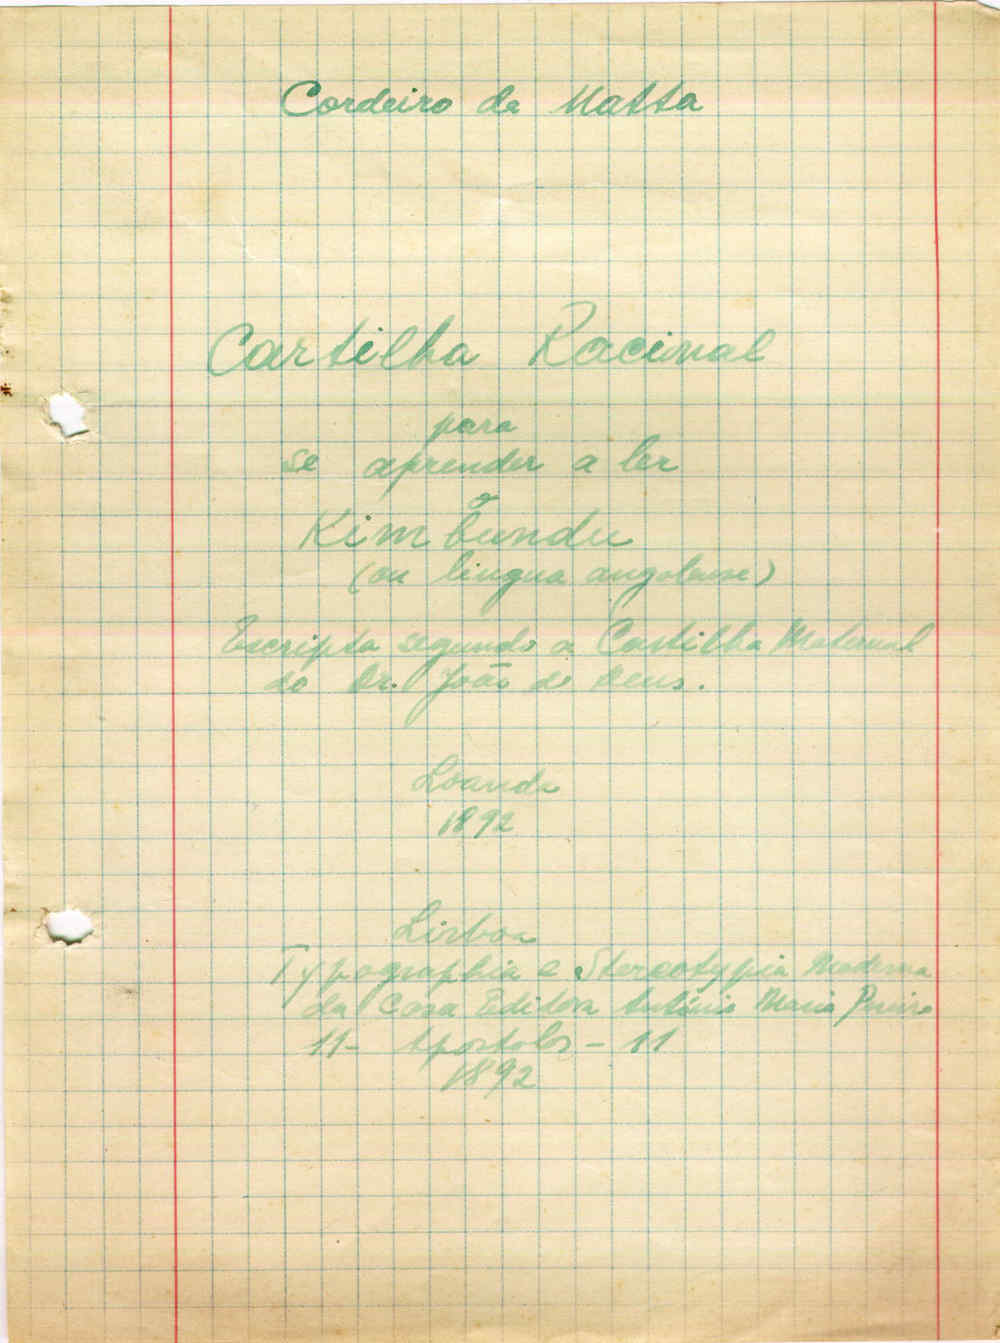 Cordeiro da Matta
Cartilha Racional
para
se aprender a ler
o
Kimbundu
(ou lingua angolense)
Escripta segundo a Cartilha Maternal
do Dr. João de Deus.
Loanda
1892
Lisboa
Typographia e Stereotypia Moderna
da Casa Editora António Maria Pereira
11- Apostolos - 11
1892